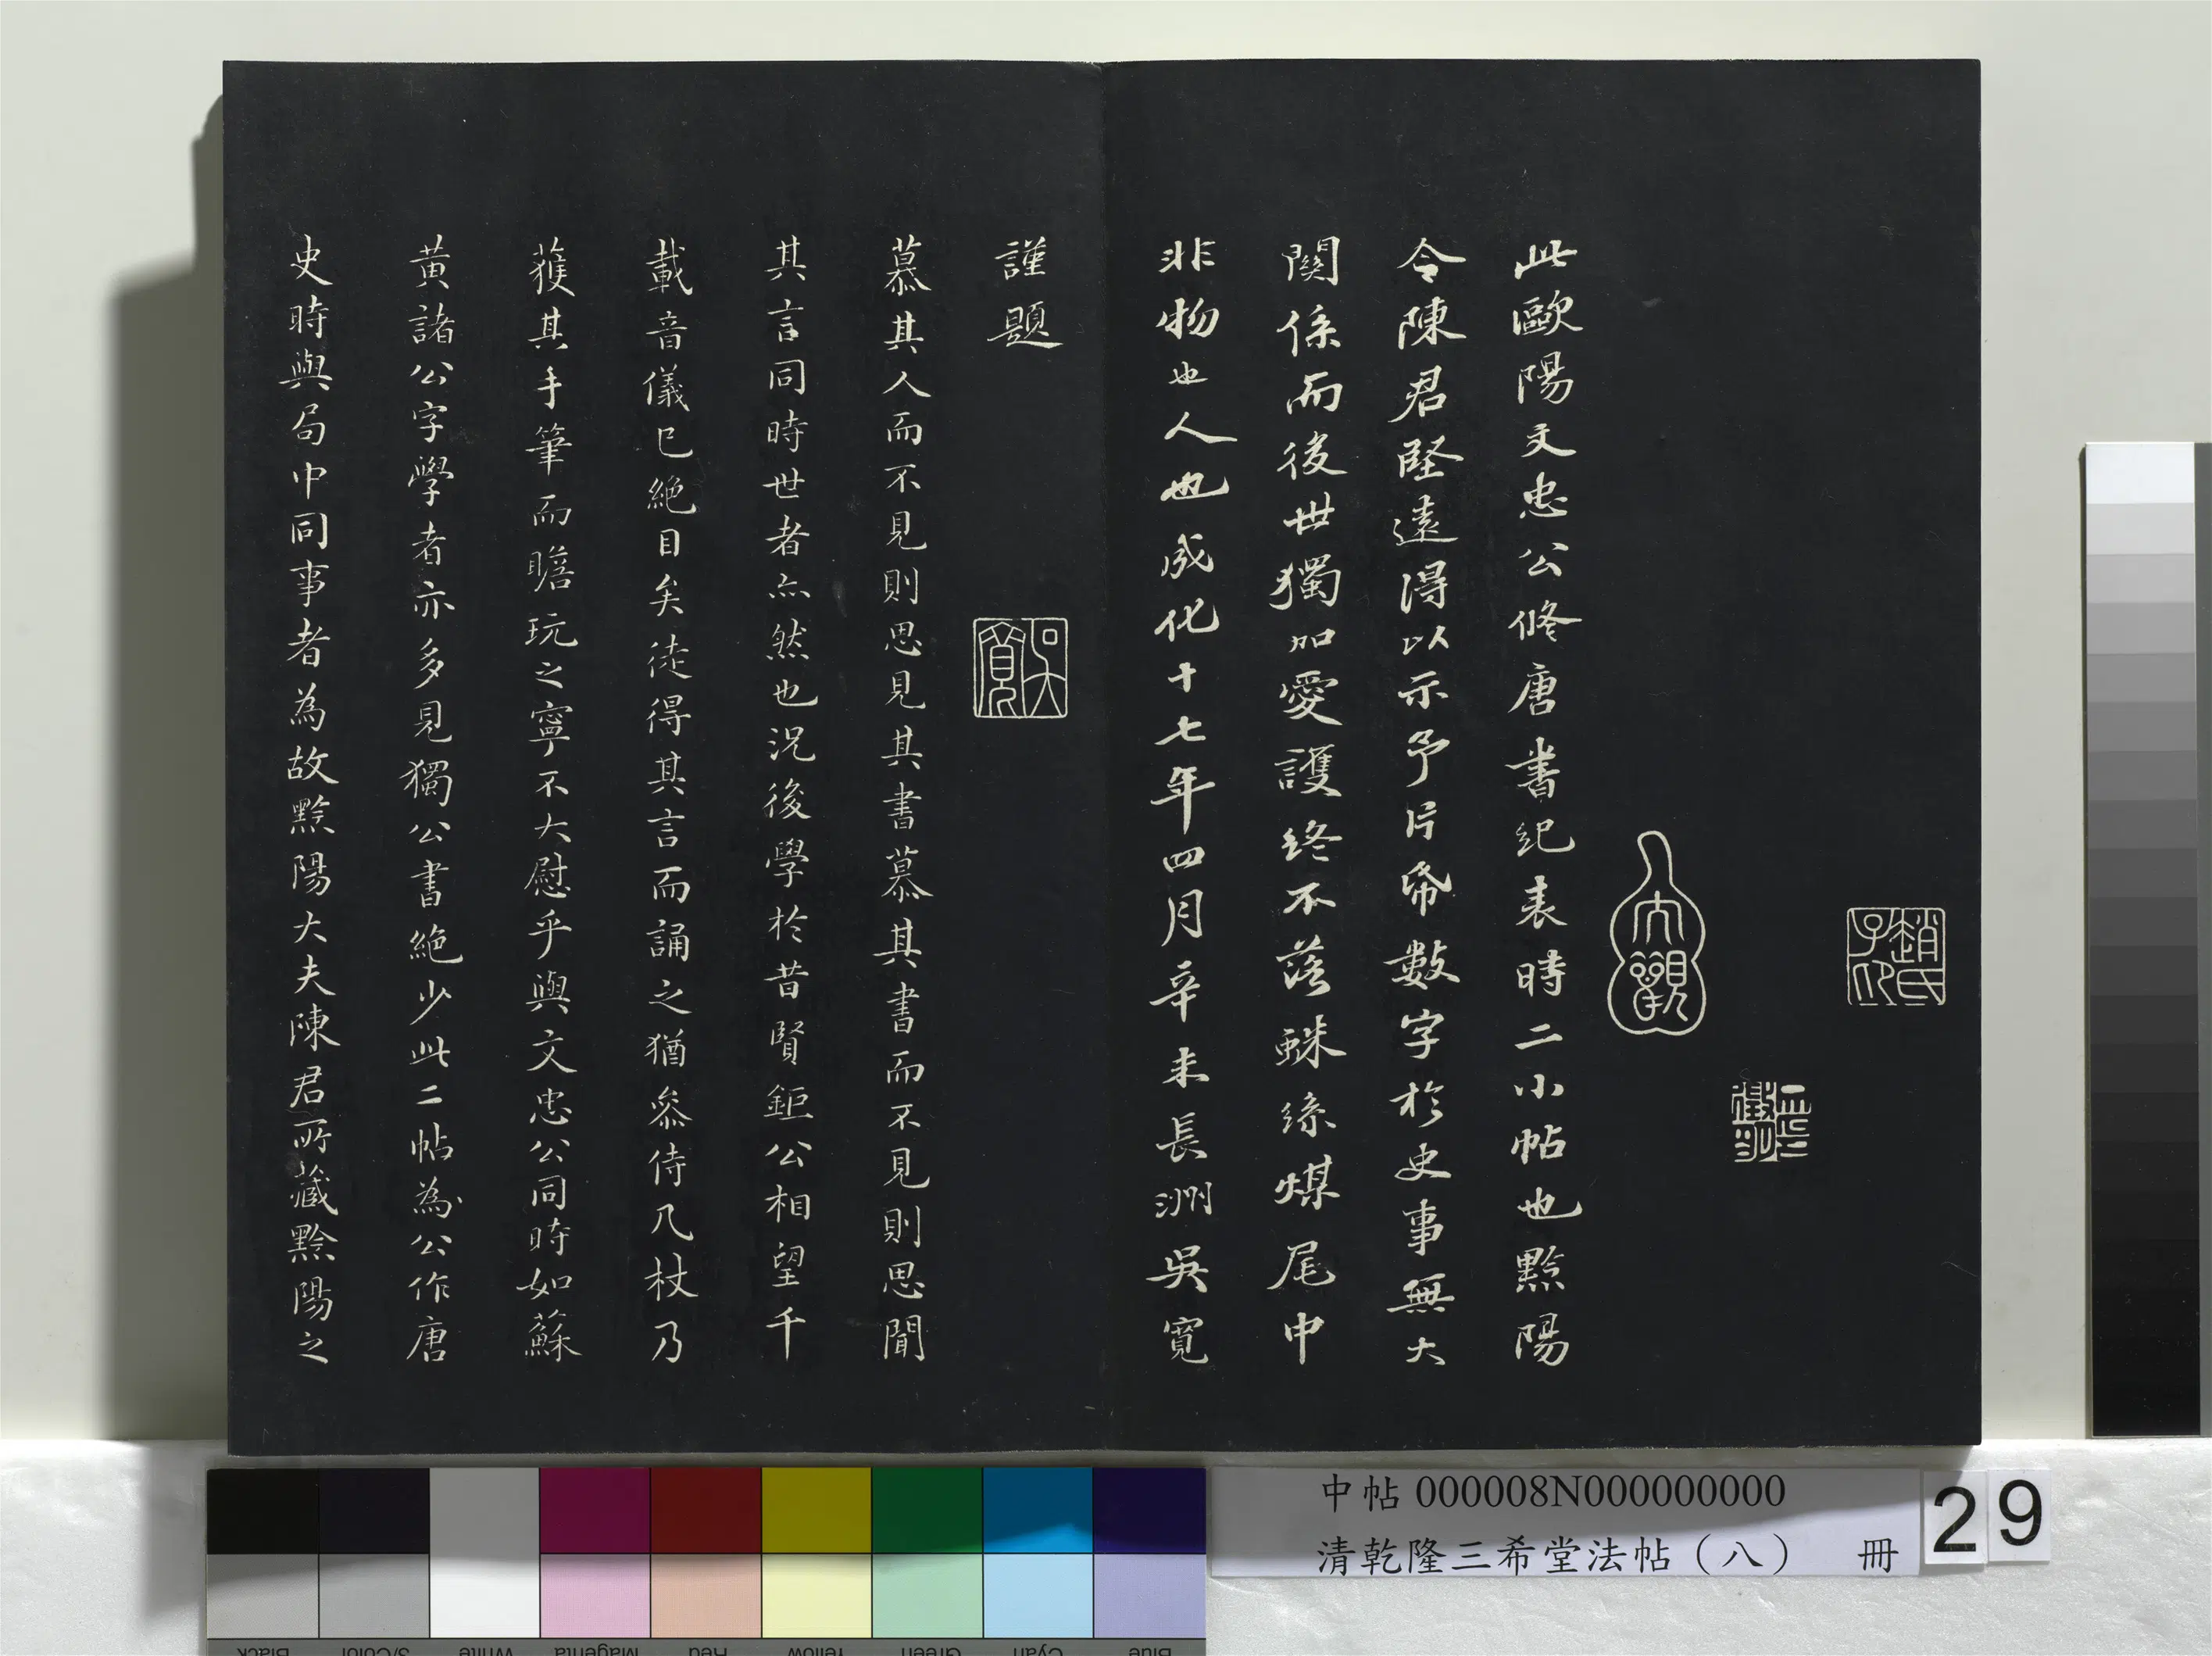 趙氏子昂
大觀
此歐陽文忠公脩唐書紀表時二小帖也黟陽
令陳君堅遠得以示予片帋數字於史事無大
關係而後世獨加愛護終不落蛛絲煤尾中
非物也人也成化十七年四月辛未長洲吳寬
謹題
慕其人而不見則思見其書慕其書而不見則思聞
其言同時世者亦然也況後學於昔賢鉅公相望千
載音儀已絶目矣徒得其言而誦之猶叅侍几杖乃
獲其手筆而瞻玩之寧不大慰乎與文忠公同時如蘇
黃諸公字學者亦多見獨公書絶少此二帖為公作唐
史時與局中同事者為故黟陽大夫陳君所藏黟陽之
中帖 000008N000000000
清乾隆三希堂法帖（八） 冊
29
Black
3/Color
White
Magenta
Red
Yellow
Green
Cyan
Blue